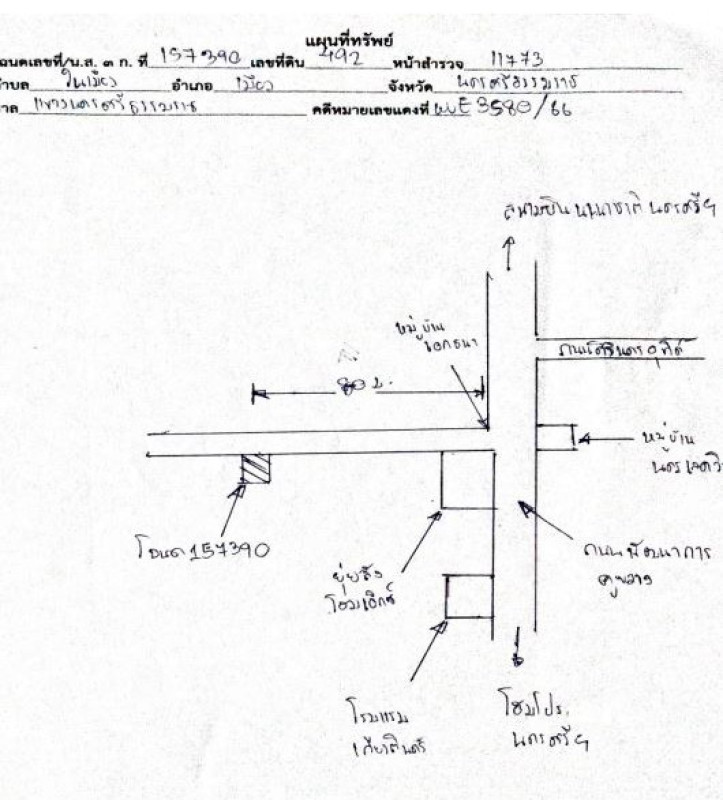 แผนที่ทรัพย์
โฉนดเลขที่/น.ส. ๓ ก. ที่ 157390 เลขที่ดิน 492 หน้าสำรวจ 11773
ตำบล ในเมือง อำเภอ เมือง จังหวัด นครศรีธรรมราช
ศาล แขวงนครศรีธรรมราช คดีหมายเลขแดงที่ ผบE 3580/66
สนามบินนานาชาติ นครศรีฯ
หมู่บ้าน
เอกธนา
80 ม.
หมู่บ้าน
โฉนด 157390
ถนนพัฒนาการ
คูขวาง
ยุ่ยล้ง
โฮมเอ็กซ์
โรงแรม
โฮมโปร
นครศรีฯ